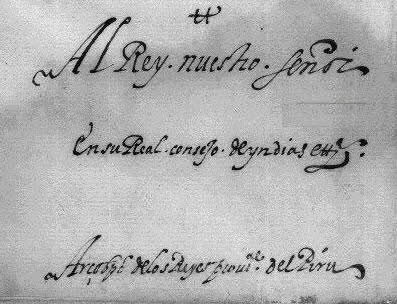 tt
Al Rey. nuestro. señor
En su Real. consejo. de yndias ettª.
Arçobpº de los Reyes prouiªˡ. del Piru